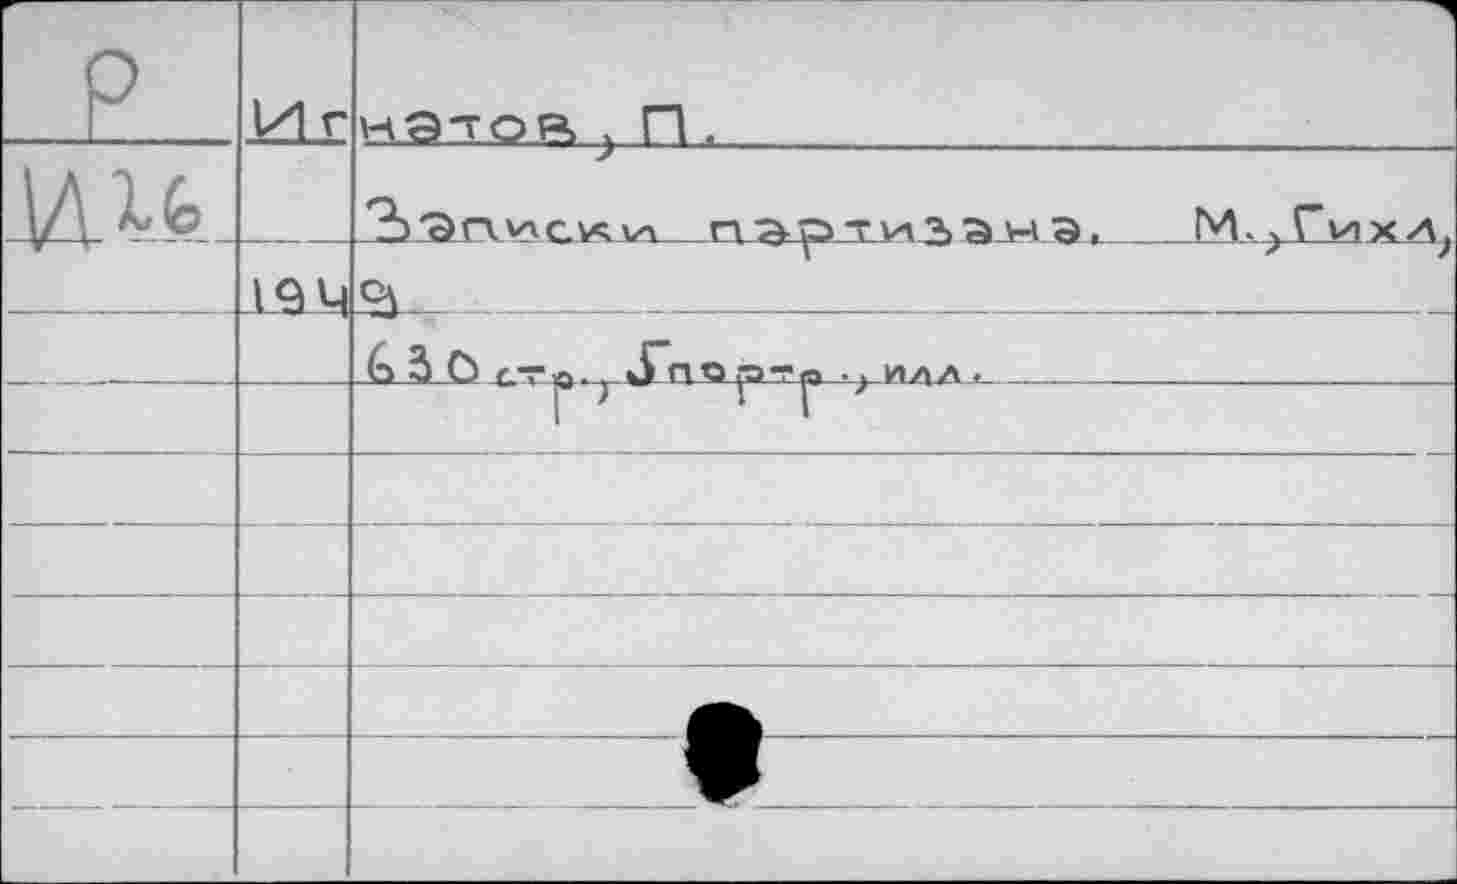 Р
Игнатов, П.
И26
Записки партизана. М., Гихл,
1949
630 стр., 5 портр., илл.